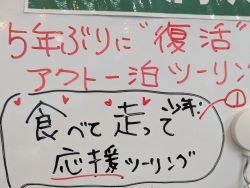 5年ぶりに"復活"
アクト一泊ツーリン
少年
食べて走って
応援ツーリング
①